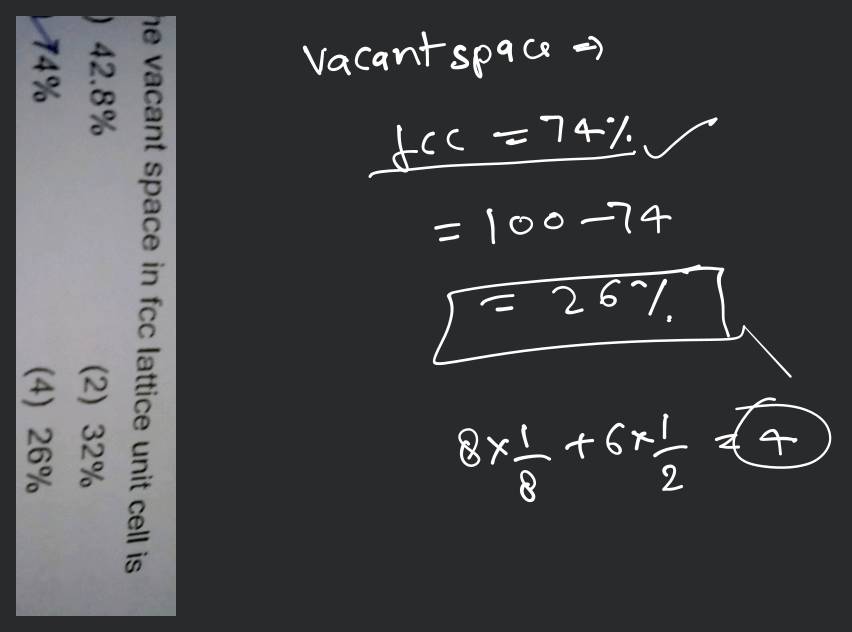 he vacant space in fcc lattice unit cell is
) 42.8% (2) 32%
) 74% (4) 26%
Vacant space ⇒
fcc = 74% ✓
= 100 - 74
= 26%
8 × 1/8 + 6 × 1/2 = 4